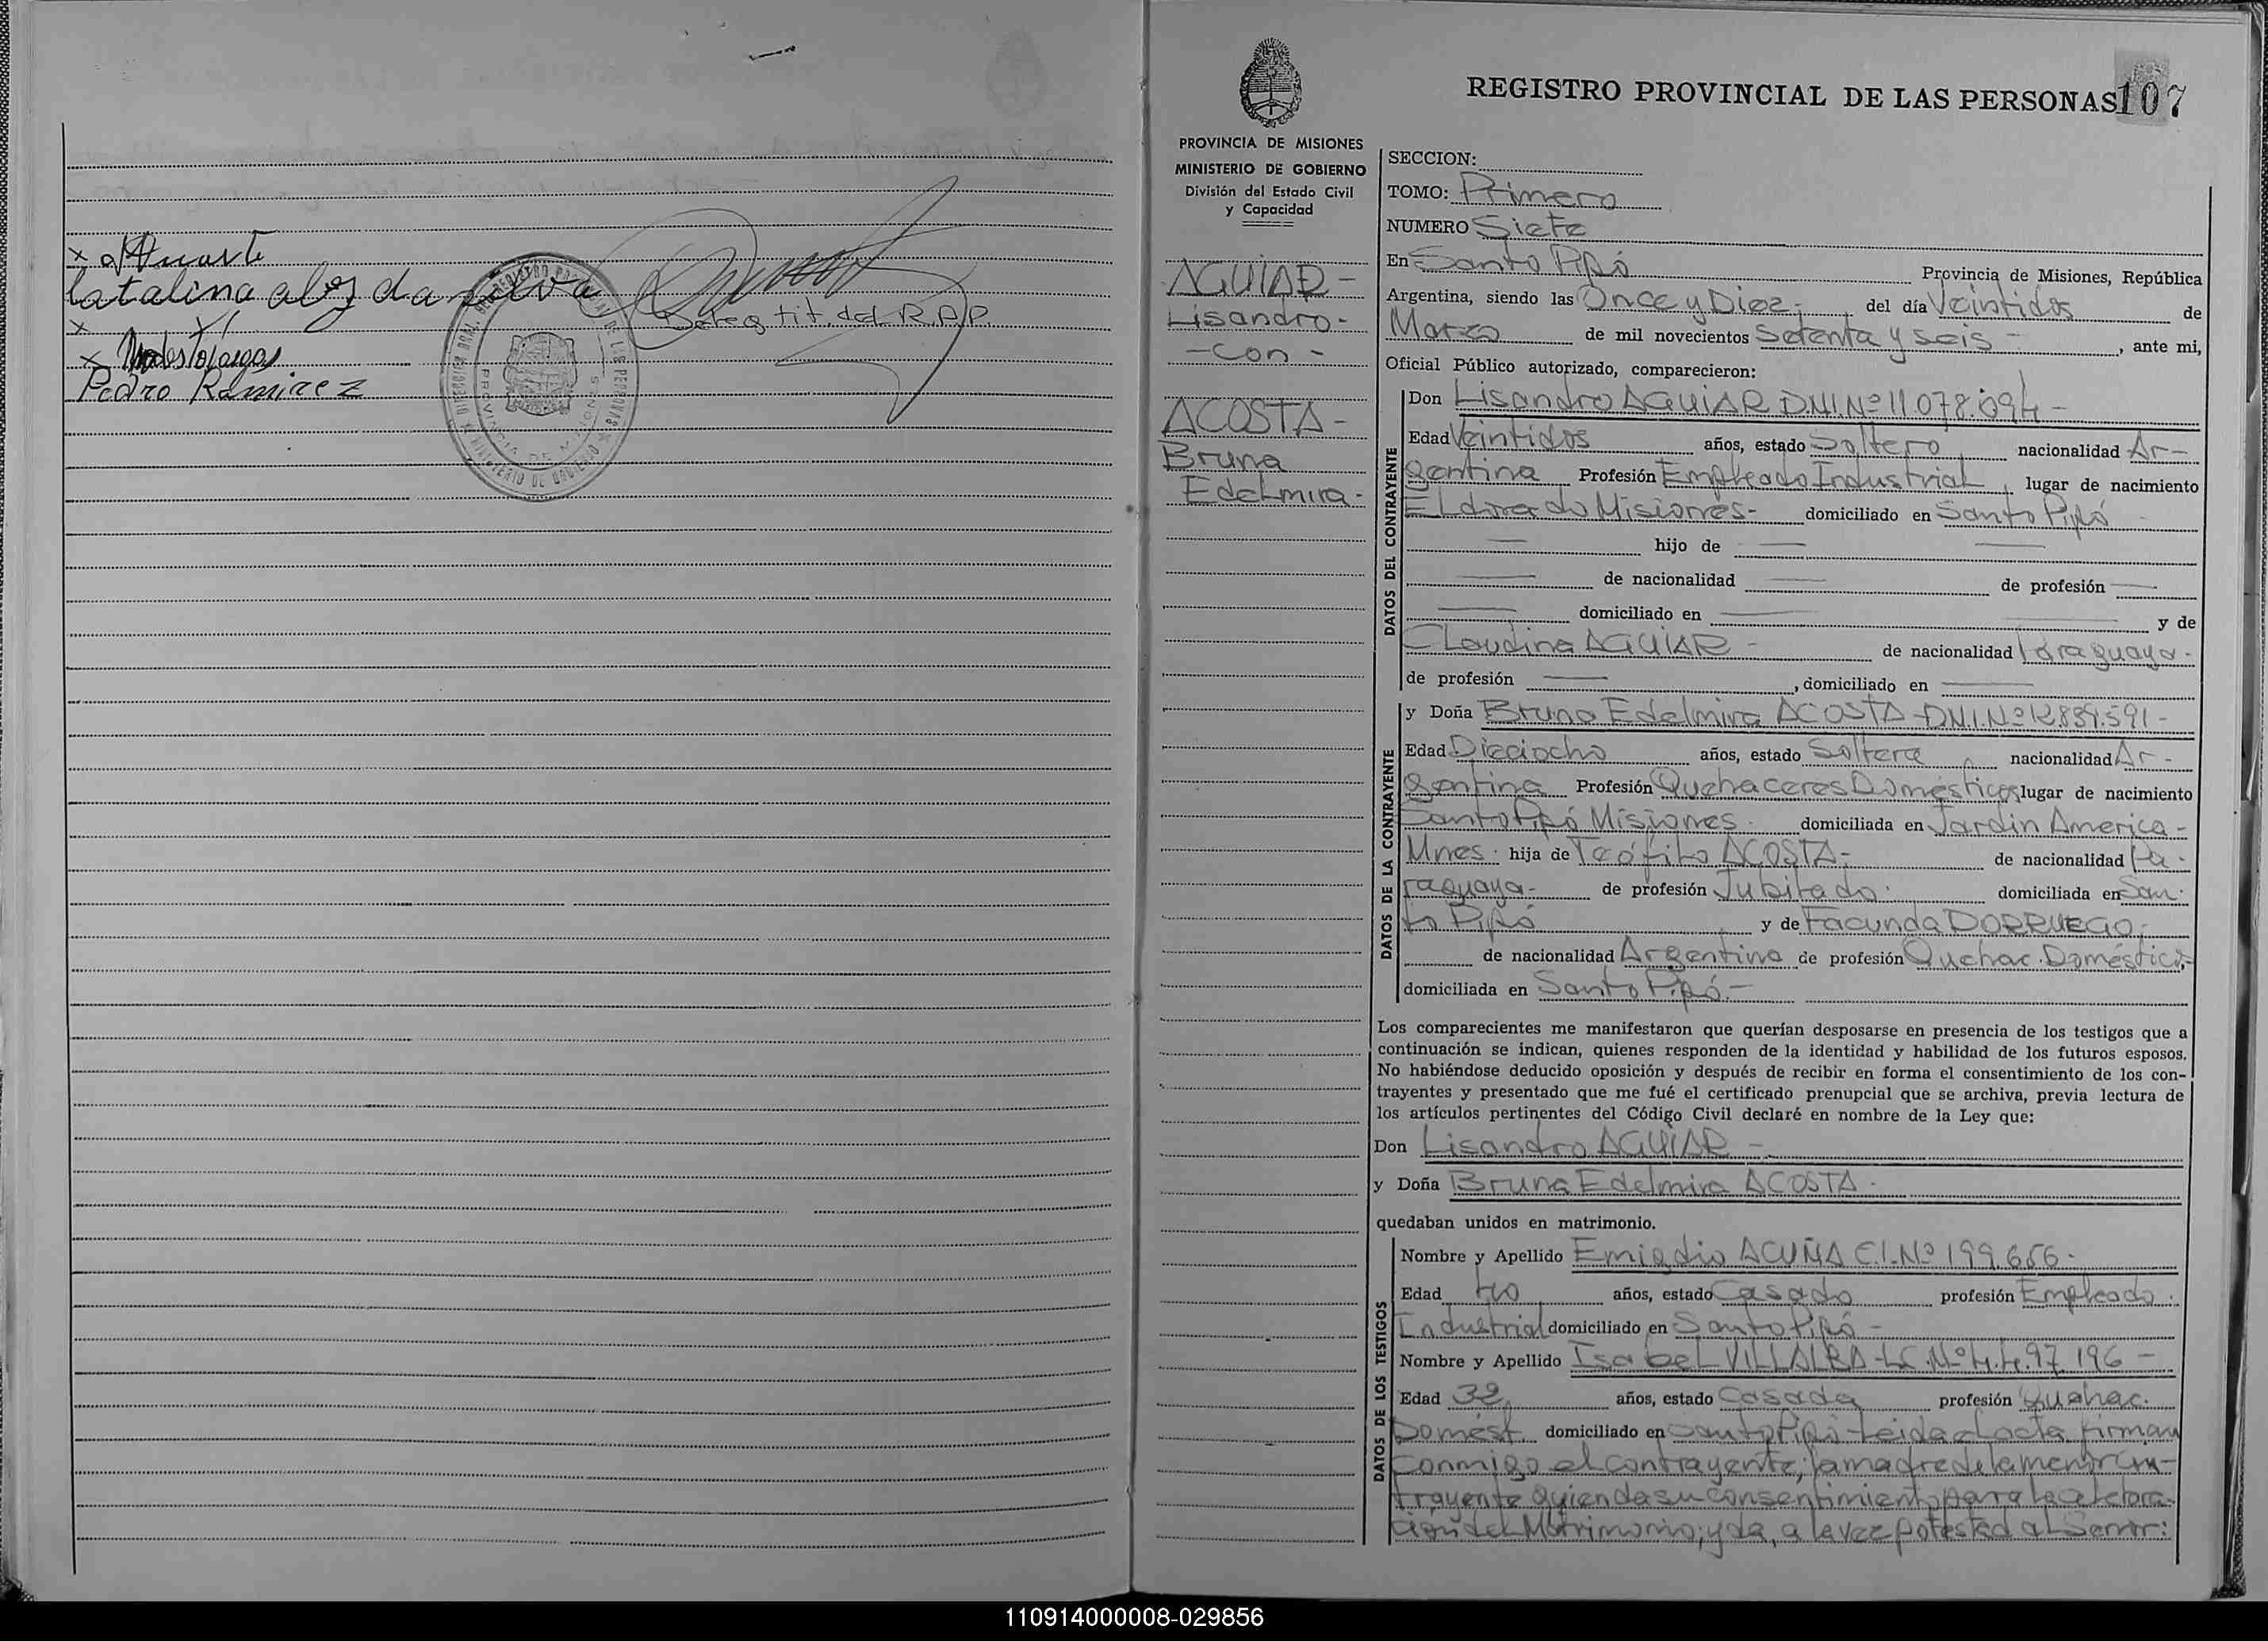 Catalina alvz da silva
Deleg tit. del R.P.P.
Pedro Ramirez
REGISTRO PROVINCIAL DE LAS PERSONAS 107
PROVINCIA DE MISIONES
MINISTERIO DE GOBIERNO
División del Estado Civil
y Capacidad
AGUIAR-
Lisandro-
-con-
ACOSTA-
Bruna
Edelmira-
SECCION:
TOMO: Primero
NUMERO Siete
En Santo Pipó Provincia de Misiones, República
Argentina, siendo las Once y Diez- del día Veintidos de
Marzo de mil novecientos Setenta y seis - , ante mi,
Oficial Público autorizado, comparecieron:
DATOS DEL CONTRAYENTE
Don Lisandro AGUIAR D.N.I.Nº 11.078.094-
Edad Veintidos años, estado Soltero nacionalidad Ar-
gentina Profesión Empleado Industrial, lugar de nacimiento
Eldorado Misiones- domiciliado en Santo Pipó
hijo de
de nacionalidad de profesión
domiciliado en y de
Claudina AGUIAR - de nacionalidad Paraguaya-
de profesión , domiciliado en
DATOS DE LA CONTRAYENTE
y Doña Bruna Edelmira ACOSTA-D.N.I.Nº 12.839.591-
Edad Dieciocho años, estado Soltera nacionalidad Ar-
gentina Profesión Quehaceres Domésticos, lugar de nacimiento
Santo Pipó Misiones. domiciliada en Jardin America-
Mnes. hija de Teófilo ACOSTA- de nacionalidad Pa-
raguaya- de profesión Jubilado. domiciliada en San-
to Pipó y de Facunda DORRUEGO-
de nacionalidad Argentina de profesión Quehac. Doméstic.-
domiciliada en Santo Pipó.-
Los comparecientes me manifestaron que querían desposarse en presencia de los testigos que a
continuación se indican, quienes responden de la identidad y habilidad de los futuros esposos.
No habiéndose deducido oposición y después de recibir en forma el consentimiento de los con-
trayentes y presentado que me fué el certificado prenupcial que se archiva, previa lectura de
los artículos pertinentes del Código Civil declaré en nombre de la Ley que:
Don Lisandro AGUIAR -
y Doña Bruna Edelmira ACOSTA.
quedaban unidos en matrimonio.
DATOS DE LOS TESTIGOS
Nombre y Apellido Emigdio ACUÑA C.I.Nº 199.656-
Edad 40 años, estado Casado profesión Empleado
Industrial domiciliado en Santo Pipó-
Nombre y Apellido Isabel VILLALBA-LC.Nº 4.4.97.196-
Edad 32 años, estado Casada profesión Quehac.
Domést. domiciliado en Santo Pipó-Leida el acta firman
conmigo el contrayente, la madre de la menor con-
trayente quien da su consentimiento para la celebra-
ción del Matrimonio, y da, a la vez potestad al Señor:
110914000008-029856